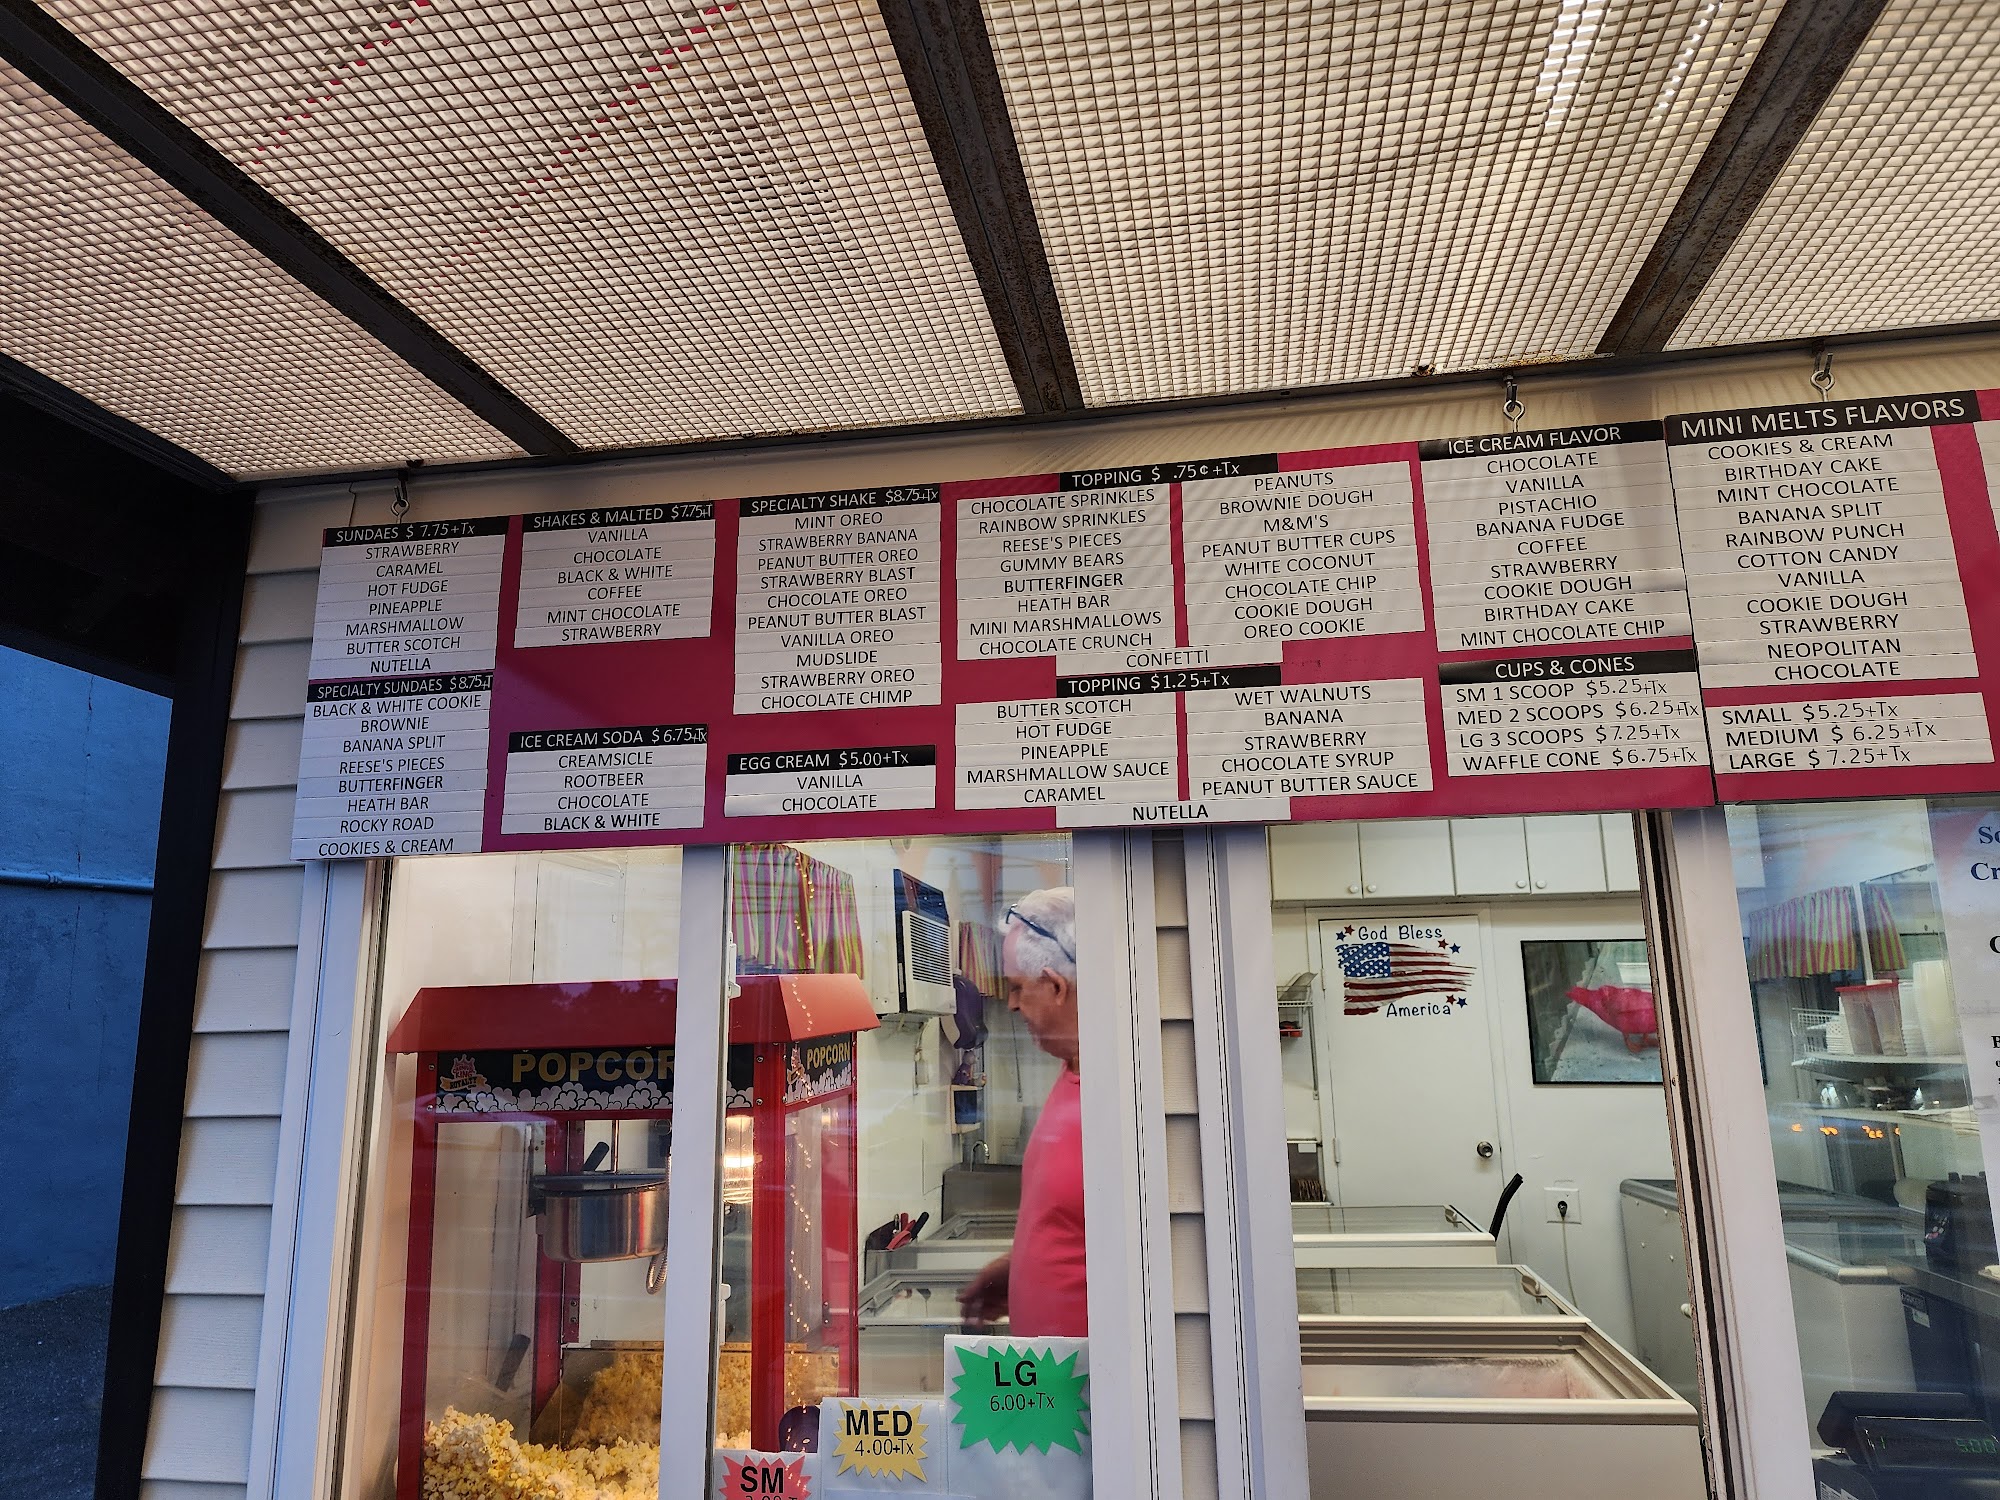 SUNDAES $ 7.75+Tx
STRAWBERRY
CARAMEL
HOT FUDGE
PINEAPPLE
MARSHMALLOW
BUTTER SCOTCH
NUTELLA
SPECIALTY SUNDAES $8.75+T
BLACK & WHITE COOKIE
BROWNIE
BANANA SPLIT
REESE'S PIECES
BUTTERFINGER
HEATH BAR
ROCKY ROAD
COOKIES & CREAM
SHAKES & MALTED $7.75+T
VANILLA
CHOCOLATE
BLACK & WHITE
COFFEE
MINT CHOCOLATE
STRAWBERRY
ICE CREAM SODA $ 6.75+Tx
CREAMSICLE
ROOTBEER
CHOCOLATE
BLACK & WHITE
SPECIALTY SHAKE $8.75+Tx
MINT OREO
STRAWBERRY BANANA
PEANUT BUTTER OREO
STRAWBERRY BLAST
CHOCOLATE OREO
PEANUT BUTTER BLAST
VANILLA OREO
MUDSLIDE
STRAWBERRY OREO
CHOCOLATE CHIMP
EGG CREAM $5.00+Tx
VANILLA
CHOCOLATE
TOPPING $ .75¢+Tx
CHOCOLATE SPRINKLES
RAINBOW SPRINKLES
REESE'S PIECES
GUMMY BEARS
BUTTERFINGER
HEATH BAR
MINI MARSHMALLOWS
CHOCOLATE CRUNCH
PEANUTS
BROWNIE DOUGH
M&M'S
PEANUT BUTTER CUPS
WHITE COCONUT
CHOCOLATE CHIP
COOKIE DOUGH
OREO COOKIE
CONFETTI
TOPPING $1.25+Tx
BUTTER SCOTCH
HOT FUDGE
PINEAPPLE
MARSHMALLOW SAUCE
CARAMEL
WET WALNUTS
BANANA
STRAWBERRY
CHOCOLATE SYRUP
PEANUT BUTTER SAUCE
NUTELLA
ICE CREAM FLAVOR
CHOCOLATE
VANILLA
PISTACHIO
BANANA FUDGE
COFFEE
STRAWBERRY
COOKIE DOUGH
BIRTHDAY CAKE
MINT CHOCOLATE CHIP
CUPS & CONES
SM 1 SCOOP $5.25+Tx
MED 2 SCOOPS $6.25+Tx
LG 3 SCOOPS $7.25+Tx
WAFFLE CONE $6.75+Tx
MINI MELTS FLAVORS
COOKIES & CREAM
BIRTHDAY CAKE
MINT CHOCOLATE
BANANA SPLIT
RAINBOW PUNCH
COTTON CANDY
VANILLA
COOKIE DOUGH
STRAWBERRY
NEOPOLITAN
CHOCOLATE
SMALL $5.25+Tx
MEDIUM $ 6.25+Tx
LARGE $ 7.25+Tx
God Bless
America
POPCOR
POPCORN
LG
6.00+Tx
MED
4.00+Tx
SM